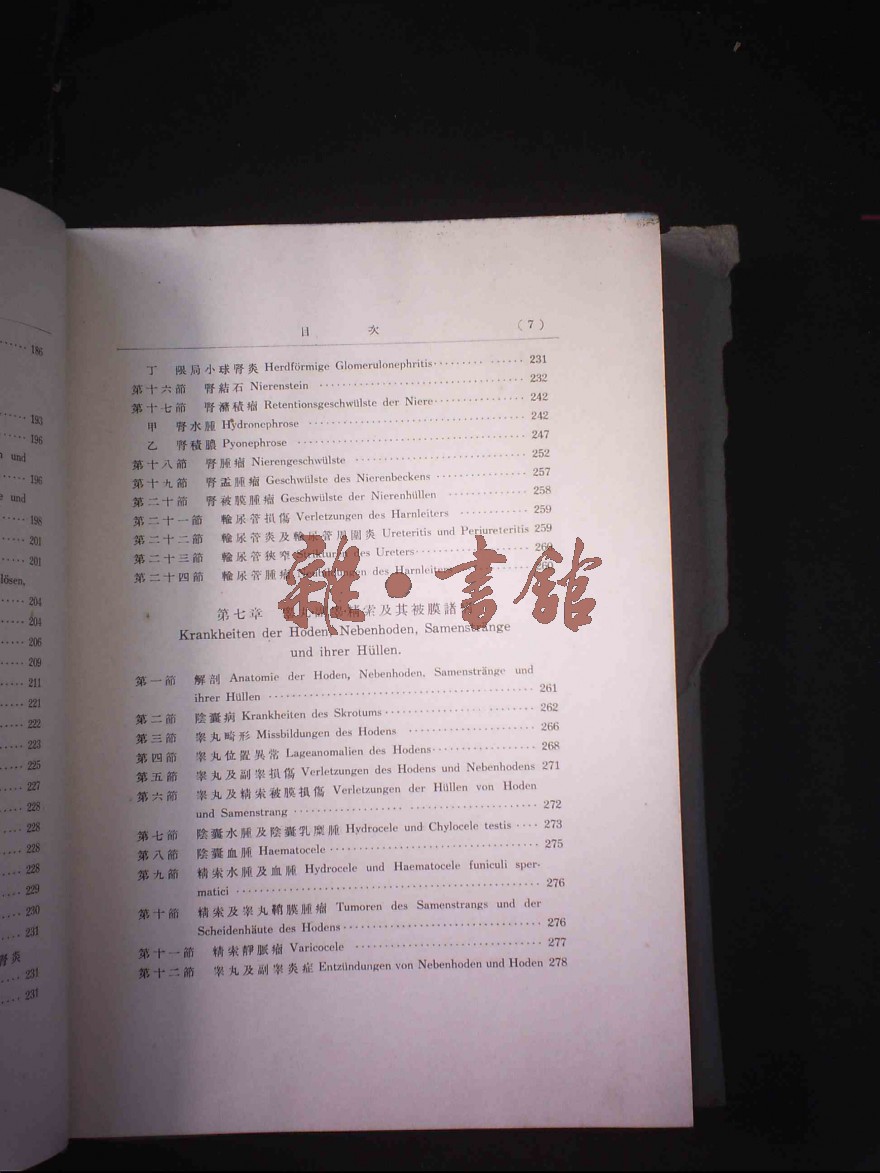 186
193
196
n und
196
e und
198
201
201
lösen,
204
204
206
209
211
221
222
223
225
227
228
228
228
228
229
230
231
腎炎
231
231
目 次 (7)
丁 限局小球腎炎 Herdförmige Glomerulonephritis 231
第十六節 腎結石 Nierenstein 232
第十七節 腎瀦積瘤 Retentionsgeschwülste der Niere 242
甲 腎水腫 Hydronephrose 242
乙 腎積膿 Pyonephrose 247
第十八節 腎腫瘤 Nierengeschwülste 252
第十九節 腎盂腫瘤 Geschwülste des Nierenbeckens 257
第二十節 腎被膜腫瘤 Geschwülste der Nierenhüllen 258
第二十一節 輸尿管損傷 Verletzungen des Harnleiters 259
第二十二節 輸尿管炎及輸尿管周圍炎 Ureteritis und Periureteritis 259
第二十三節 輸尿管狹窄 Strikturen des Ureters 260
第二十四節 輸尿管腫瘤 Neubildungen des Harnleiters 260
雜·書館
第七章 睾丸 精索及其被膜諸
Krankheiten der Hoden, Nebenhoden, Samenstränge
und ihrer Hüllen.
第一節 解剖 Anatomie der Hoden, Nebenhoden, Samenstränge und
ihrer Hüllen 261
第二節 陰囊病 Krankheiten des Skrotums 262
第三節 睾丸畸形 Missbildungen des Hodens 266
第四節 睾丸位置異常 Lageanomalien des Hodens 268
第五節 睾丸及副睾損傷 Verletzungen des Hodens und Nebenhodens 271
第六節 睾丸及精索被膜損傷 Verletzungen der Hüllen von Hoden
und Samenstrang 272
第七節 陰囊水腫及陰囊乳糜腫 Hydrocele und Chylocele testis 273
第八節 陰囊血腫 Haematocele 275
第九節 精索水腫及血腫 Hydrocele und Haematocele funiculi sper-
matici 276
第十節 精索及睾丸鞘膜腫瘤 Tumoren des Samenstrangs und der
Scheidenhäute des Hodens 276
第十一節 精索靜脈瘤 Varicocele 277
第十二節 睾丸及副睾炎症 Entzündungen von Nebenhoden und Hoden 278